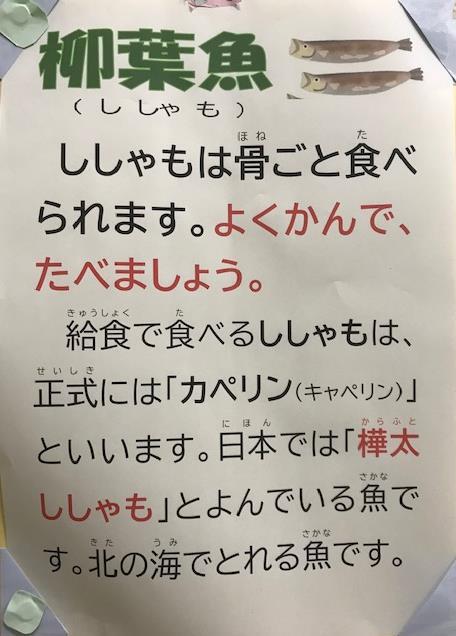 柳葉魚
(ししゃも)
ほね た
ししゃもは骨ごと食べ
られます。よくかんで、
たべましょう。
きゅうしょく た
給食で食べるししゃもは、
せいしき
正式には「カペリン(キャペリン)」
にほん からふと
といいます。日本では「樺太
さかな
ししゃも」とよんでいる魚で
きた うみ さかな
す。北の海でとれる魚です。